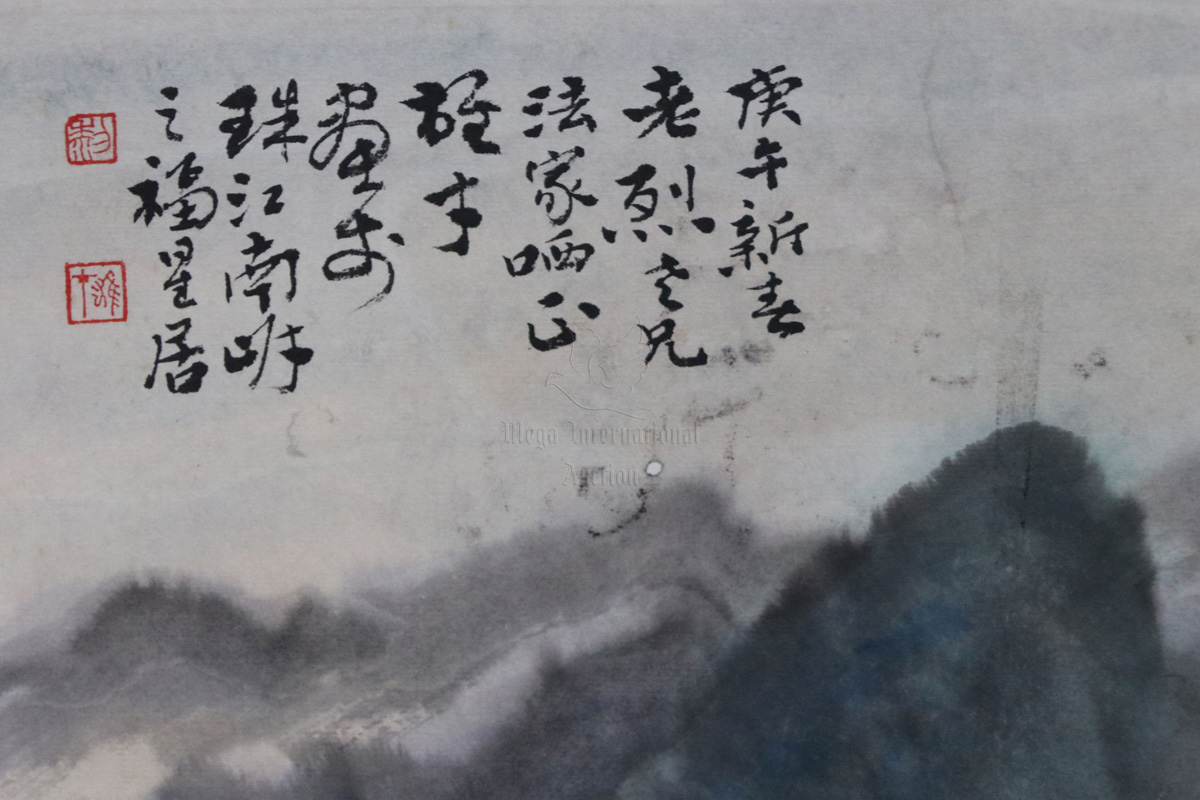 庚午新春
老烈老兄
法家哂正
雄才
畫於
珠江南岸
之福星居
黎
雄才
Mega International
Auction